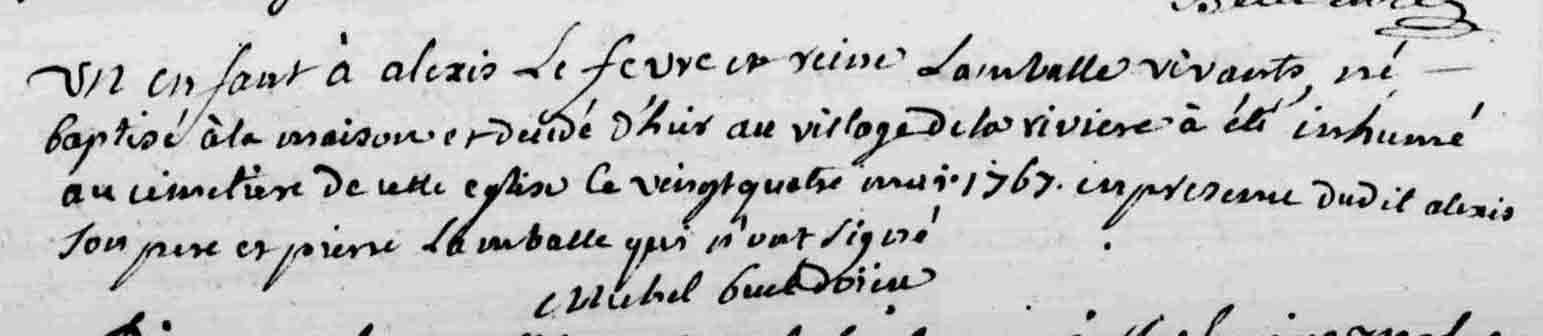 un enfant à alexis Le fevre et reine Lamballe vivants, né —
baptisé à la maison et decedé d'hier au village de la riviere à été inhumé
au cimetiere de cette eglise le vingt quatre mai 1767. en presence dudit alexis
son pere et pierre Lamballe qui n'ont signé
Michel